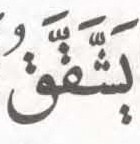 يَشَّقَّقُ